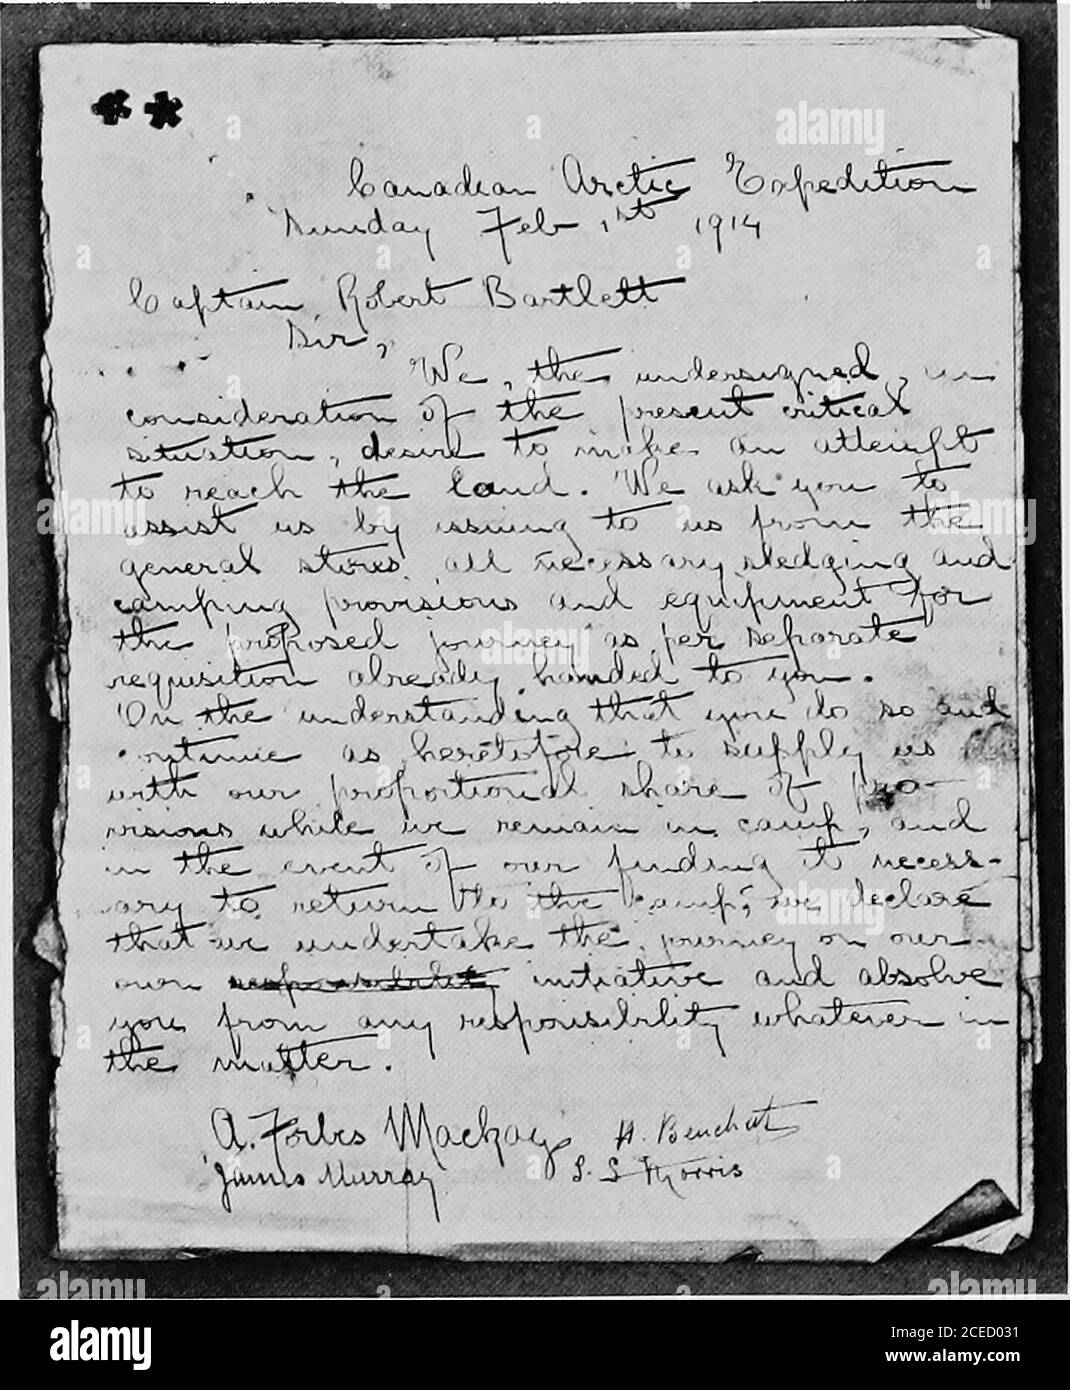 Canadian Arctic Expedition
Sunday Feb 1st 1914
Captain Robert Bartlett
Sir,
We, the undersigned, in
consideration of the present critical
situation, desire to make an attempt
to reach the land. We ask you to
assist us by issuing to us from the
general stores all necessary sledging and
camping provisions and equipment for
the proposed journey as per separate
requisition already handed to you.
On the understanding that you do so and
continue as heretofore to supply us
with our proportional share of pro-
visions while we remain in camp, and
in the event of our finding it necess-
ary to return to the camp, we declare
that we undertake the journey on our
own responsibility initiative and absolve
you from any responsibility whatever in
the matter.
A. Forbes Mackay H. Beuchat
James Murray S. S Morris
alamy
Image ID: 2CED031
www.alamy.com